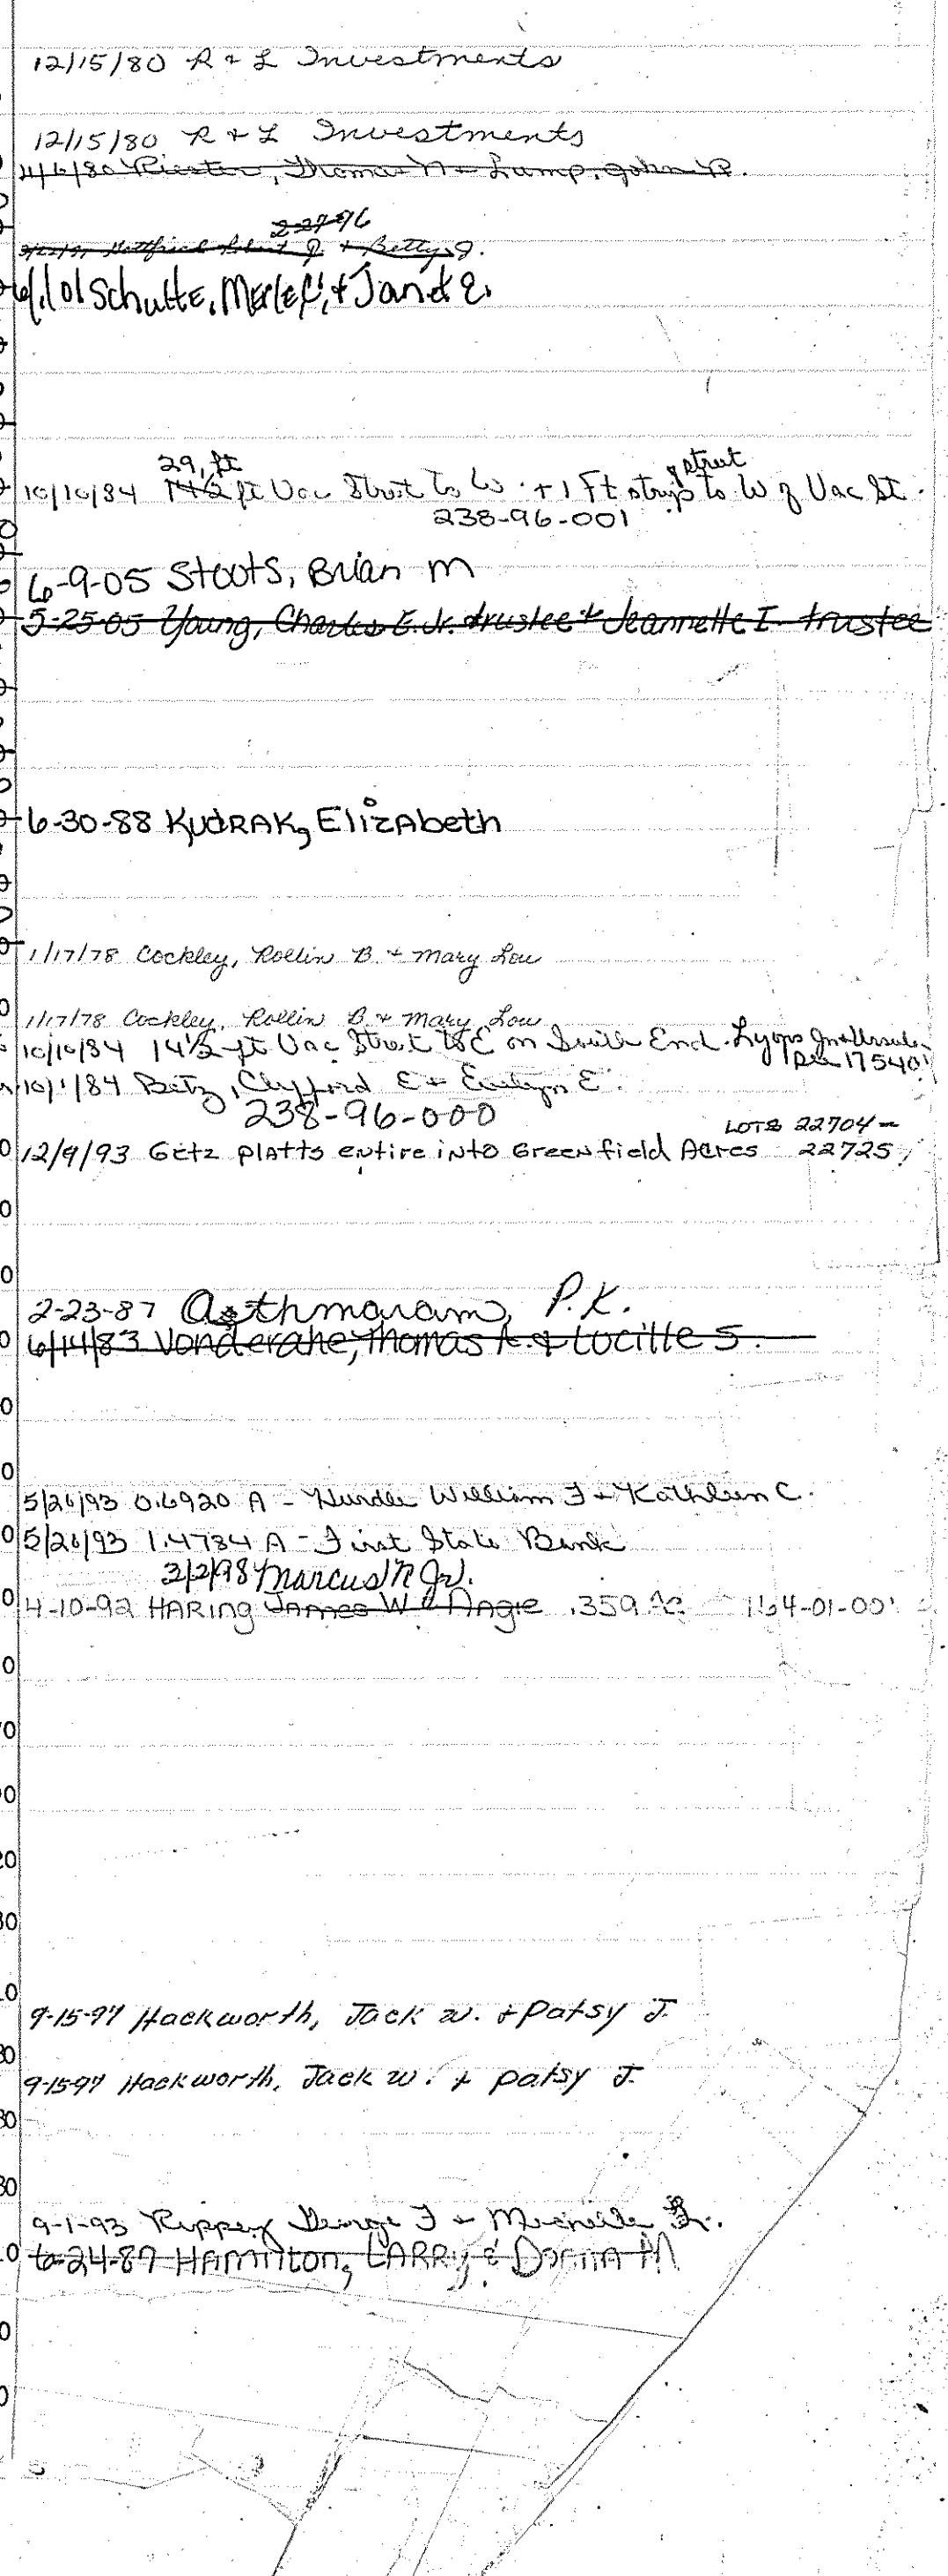 12/15/80 R & L Investments
12/15/80 R & L Investments
Thomas N & Lump, John R.
2-27-96
& Betty J.
Schulte, Merle & Janet E.
29 ft street
10/10/84 14 1/2 ft Vac Street to W. + 1 Ft strip to W of Vac St.
238-96-001
6-9-05 Stoots, Brian M
5-25-05 Young, Charles E. Jr. trustee & Jeannette I trustee
6-30-88 KUDRAK, Elizabeth
1/17/78 Cockley, Rollin B & Mary Lou
1/17/78 Cockley, Rollin B & Mary Lou
10/10/84 14 1/2 ft Vac Street to E on South End. Lyons
17540
10/1/84 Betz, Clyfford E & Evelyn E.
238-96-000
LOTS 22704-
12/9/93 Getz PLATTS entire into Greenfield Acres 22725
2-23-87 Aathmaram, P.K.
6/14/83 Vonderahe, Thomas A. & Lucille S.
5/26/93 0.6920 A - William F & Kathleen C.
5/26/93 1.4734 A - First State Bank
3/2/98 Marcus N Jr.
4-10-92 HARING JAMES W & ANGIE .359 AC 164-01-00
9-15-97 Hackworth, Jack W. & Patsy J.
9-15-97 Hackworth, Jack W. & Patsy J.
9-1-93 Rippey George F & Michelle R.
6-24-87 HAMILTON, LARRY & DONNA M